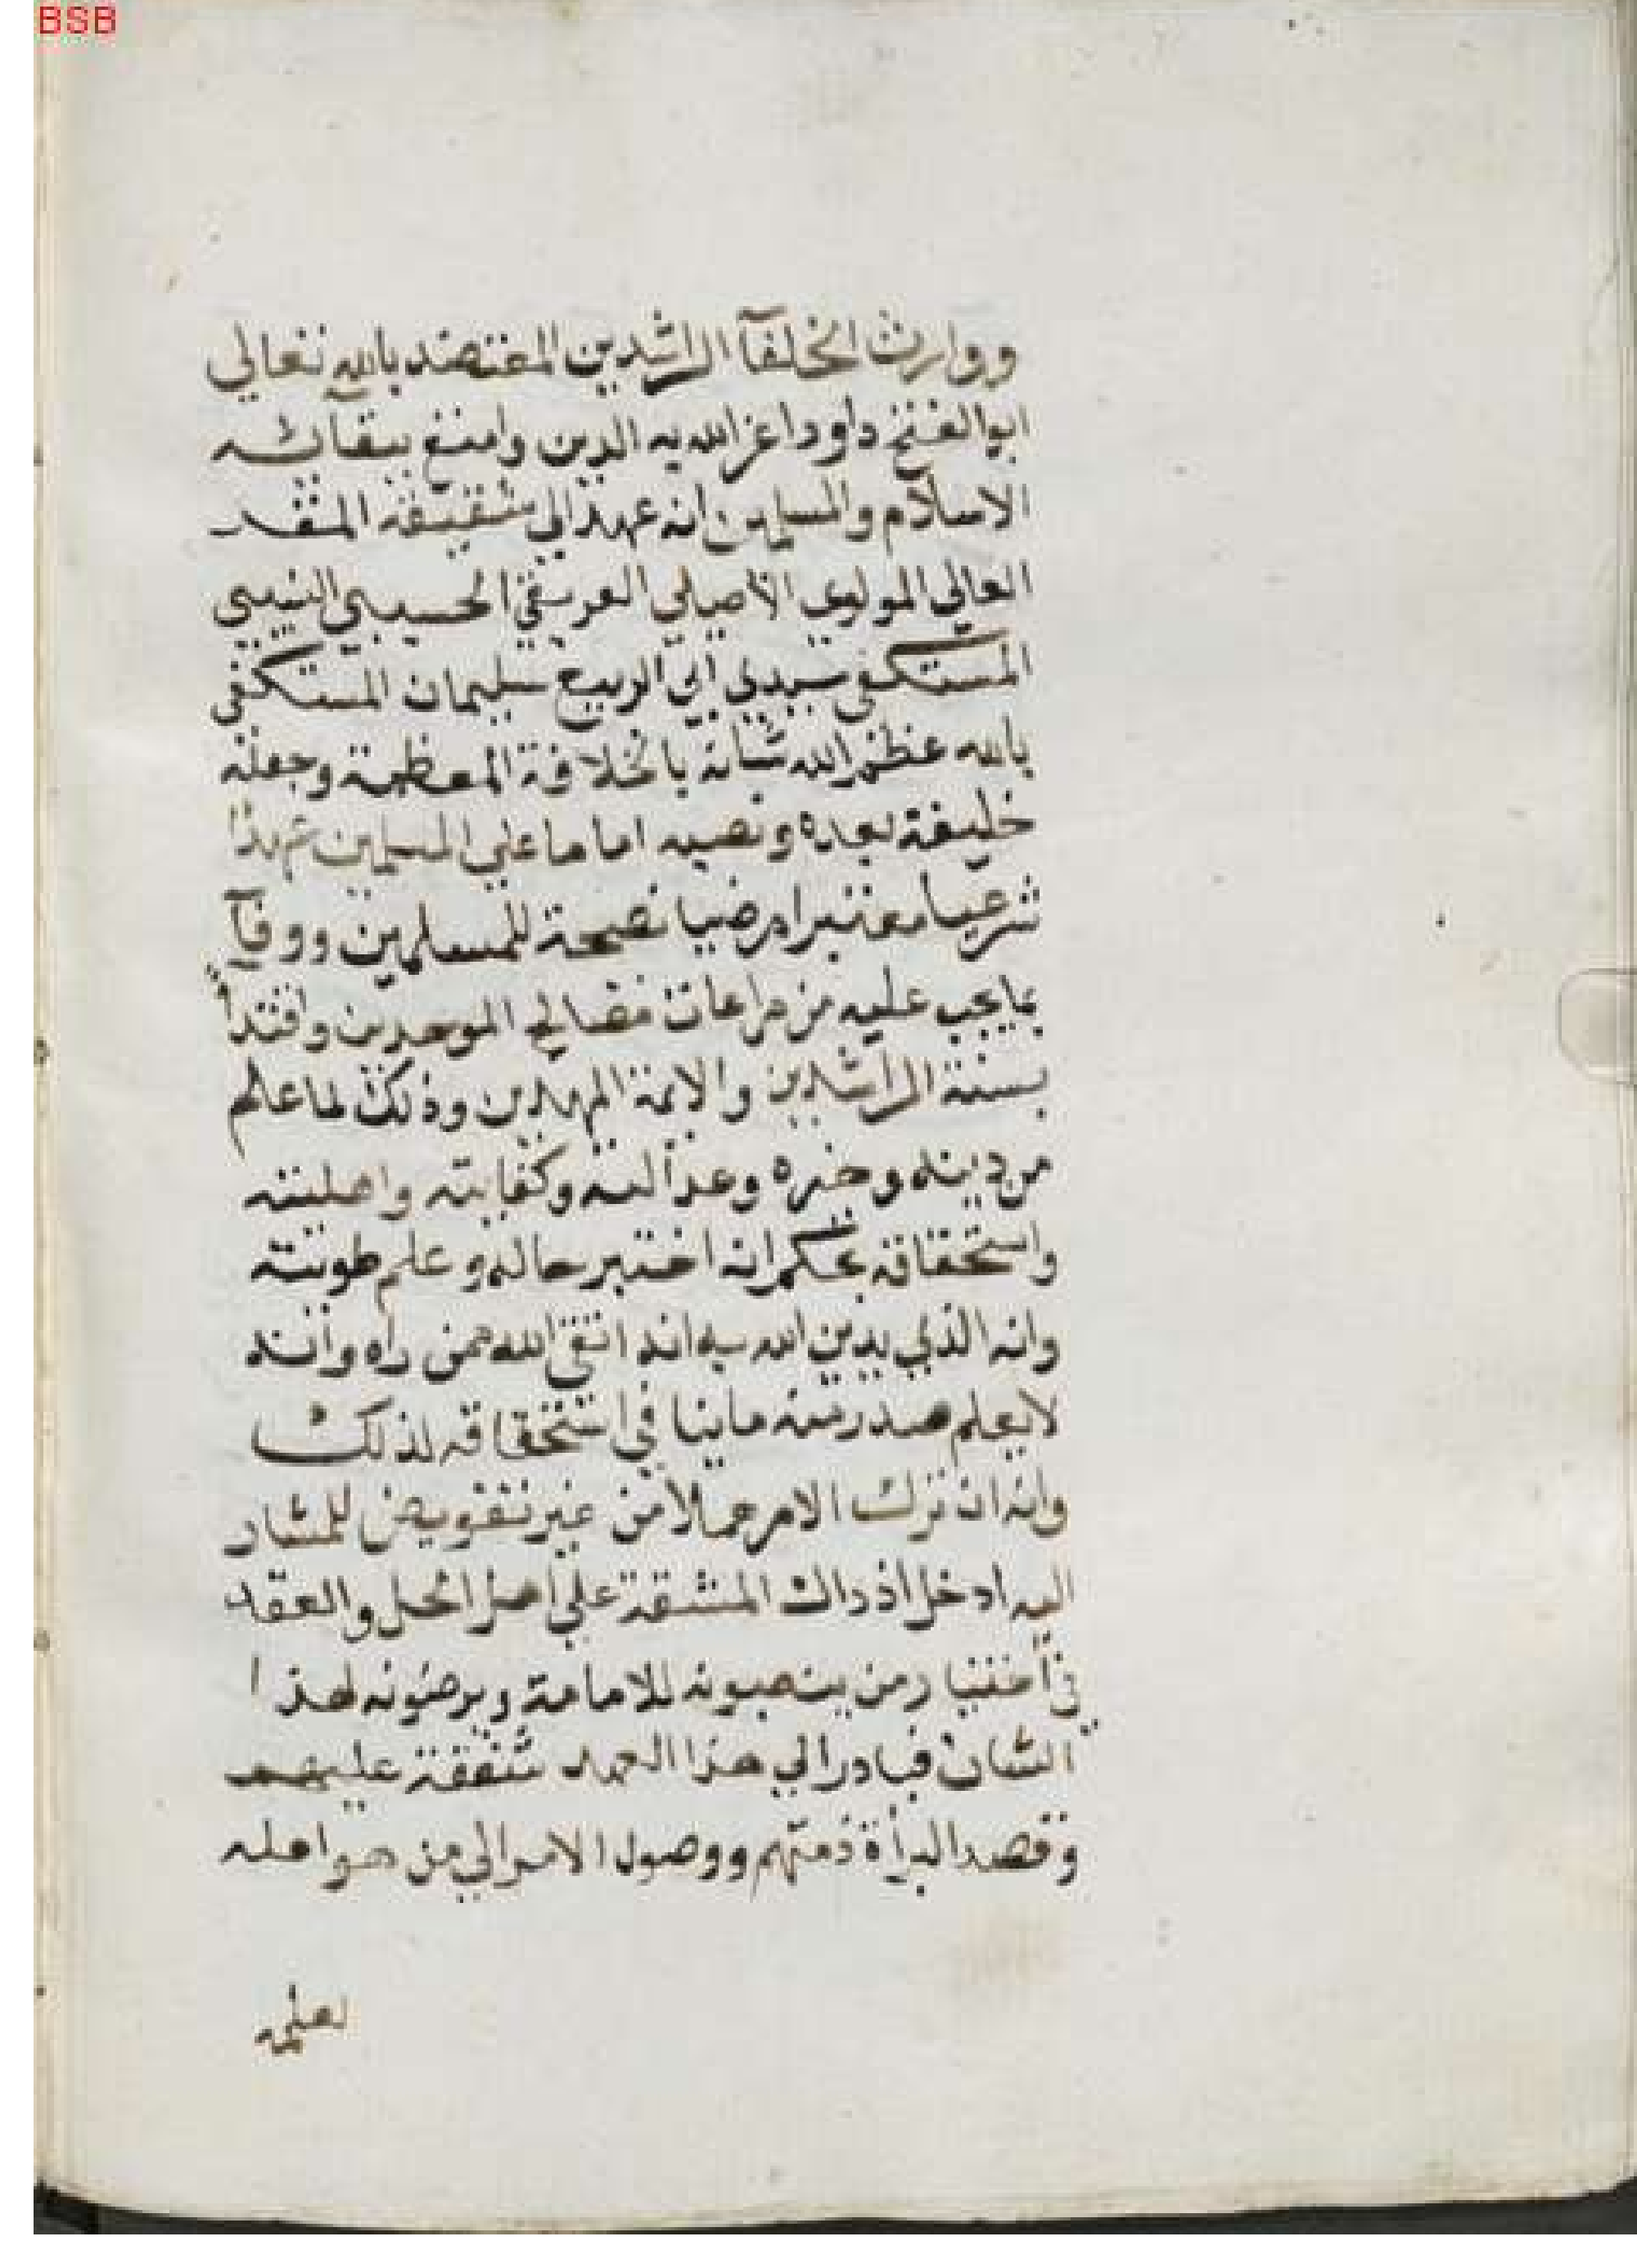 BSB
ووارث الخلفآ الراشدين المعتضد بالله تعالي
ابو الفتح داود اعز الله به الدين وامتع ببقائه
الاسلام والمسلمين انه عهد الي شقيقه المقر
العالي المولوي الاصيلي العريقي الحسيبي النسيبي
المستكفي سيدي ابي الربيع سليمان المستكفي
بالله عظم الله شانه بالخلافة المعظمة وجعله
خليفة بعده ونصبه اماما علي المسلمين عهدا
شرعيا معتبرا مرضيا نصيحة للمسلمين ووفآ
بما يجب عليه من مراعات مصالح الموحدين واقتدآ
بسنة الراشدين والايمة المهديين وذلك لما علم
من دينه وخيره وعدالته وكفايته واهليته
واستحقاقه بحكم انه اختبر حاله وعلم طويته
وانه الذي يدين الله به انه اتقي الله ممن راه وانه
لا يعلم صدر منه ما ينا في استحقاقه لذلك
وانه ان ترك الامر هملا من غير تفويض للمشار
اليه ادخل اذ ذاك المشقة علي اهل الحل والعقد
في اختيار من ينصبونه للامامة ويرضونه لهذا
الشان فبادر الي هذا العهد شفقة عليهم
وقصد البرأة ذمتهم ووصول الامر الي من هو اهله
لعلمه